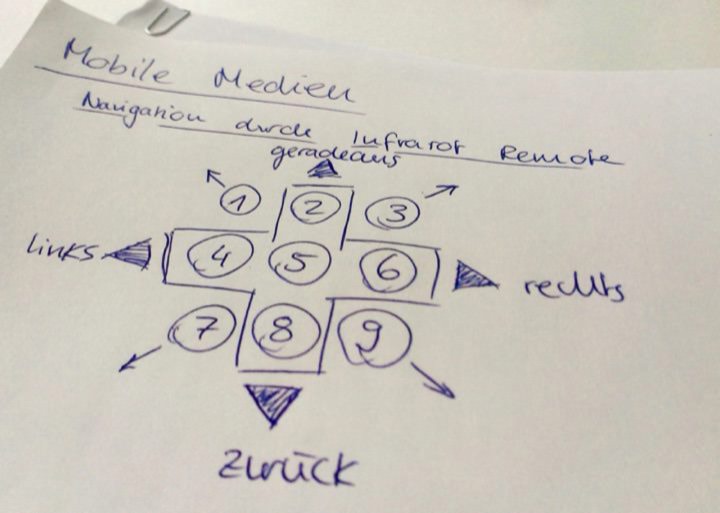 Mobile Medien
Navigation durch Infrarot Remote
geradeaus
1 2 3
links 4 5 6 rechts
7 8 9
zurück